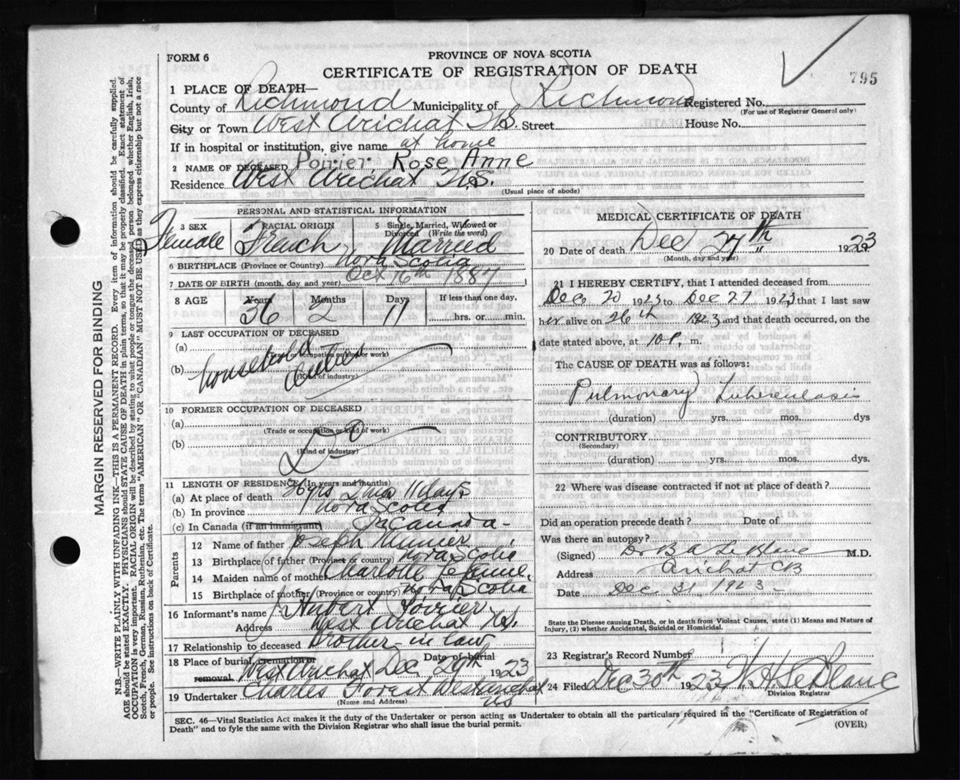 FORM 6
PROVINCE OF NOVA SCOTIA
CERTIFICATE OF REGISTRATION OF DEATH
795
1 PLACE OF DEATH—
County of Richmond Municipality of Richmond Registered No.
(For use of Registrar General only)
City or Town West Arichat N.S. Street House No.
If in hospital or institution, give name at home
2 NAME OF DECEASED Poirier Rose Anne
Residence West Arichat N.S.
(Usual place of abode)
PERSONAL AND STATISTICAL INFORMATION
3 SEX 4 RACIAL ORIGIN 5 Single, Married, Widowed or Divorced (Write the word)
Female French Married
6 BIRTHPLACE (Province or Country) Nova Scotia
7 DATE OF BIRTH (month, day, and year) Oct 16th 1887
8 AGE Years Months Days If less than one day,
36 2 11 hrs. or min.
9 LAST OCCUPATION OF DECEASED
(a)
(Trade or occupation or kind of work)
(b) household duties
(Kind of industry)
10 FORMER OCCUPATION OF DECEASED
(a)
(Trade or occupation or kind of work)
(b) Do
(Kind of industry)
11 LENGTH OF RESIDENCE (In years and months)
(a) At place of death 36 yrs 2 mos 11 days
(b) In province Nova Scotia
(c) In Canada (if an immigrant) In Canada
Parents
12 Name of father Joseph
13 Birthplace of father (Province or country) Nova Scotia
14 Maiden name of mother Charlotte
15 Birthplace of mother (Province or country) Nova Scotia
16 Informant's name Hubert Poirier
Address West Arichat N.S.
17 Relationship to deceased Brother in law
18 Place of burial, cremation or removal. West Arichat Date of burial Dec 29th 1923
19 Undertaker Charles Forest West Arichat NS
(Name and Address)
MEDICAL CERTIFICATE OF DEATH
20 Date of death Dec 27th 1923
(Month, day and year)
21 I HEREBY CERTIFY, that I attended deceased from
Dec 20 1923 to Dec 27 1923 that I last saw
her alive on 26th 1923 and that death occurred, on
date stated above, at 10 P. m.
The CAUSE OF DEATH was as follows:
Pulmonary Tuberculosis
(duration) yrs. mos. dys
CONTRIBUTORY
(Secondary)
(duration) yrs. mos. ds
22 Where was disease contracted if not at place of death?
Did an operation precede death? Date of
Was there an autopsy?
(Signed) Dr B A LeBlanc M.D.
Address Arichat CB
Date Dec 31 1923
State the Disease causing Death, or in death from Violent Causes, state (1) Means and Nature of
Injury, (2) whether Accidental, Suicidal or Homicidal.
23 Registrar's Record Number
24 Filed Dec 30th 1923 LeBlanc
Division Registrar
SEC. 46—Vital Statistics Act makes it the duty of the Undertaker or person acting as Undertaker to obtain all the particulars required in the "Certificate of Registration of
Death" and to fyle the same with the Division Registrar who shall issue the burial permit.
(OVER)
MARGIN RESERVED FOR BINDING
N.B.—WRITE PLAINLY WITH UNFADING INK—THIS IS A PERMANENT RECORD. Every item of information should be carefully supplied.
AGE should be stated EXACTLY. PHYSICIANS should STATE CAUSE OF DEATH in plain terms, so that it may be properly classified. Exact statement of
OCCUPATION is very important. RACIAL ORIGIN will be described by stating to what people or tongue the deceased person belonged, whether English, Irish,
Scotch, French, German, Russian, Ruthenian, etc. The terms "AMERICAN" OR "CANADIAN" MUST NOT BE USED as they express citizenship but not a race
or people. See instructions on back of Certificate.